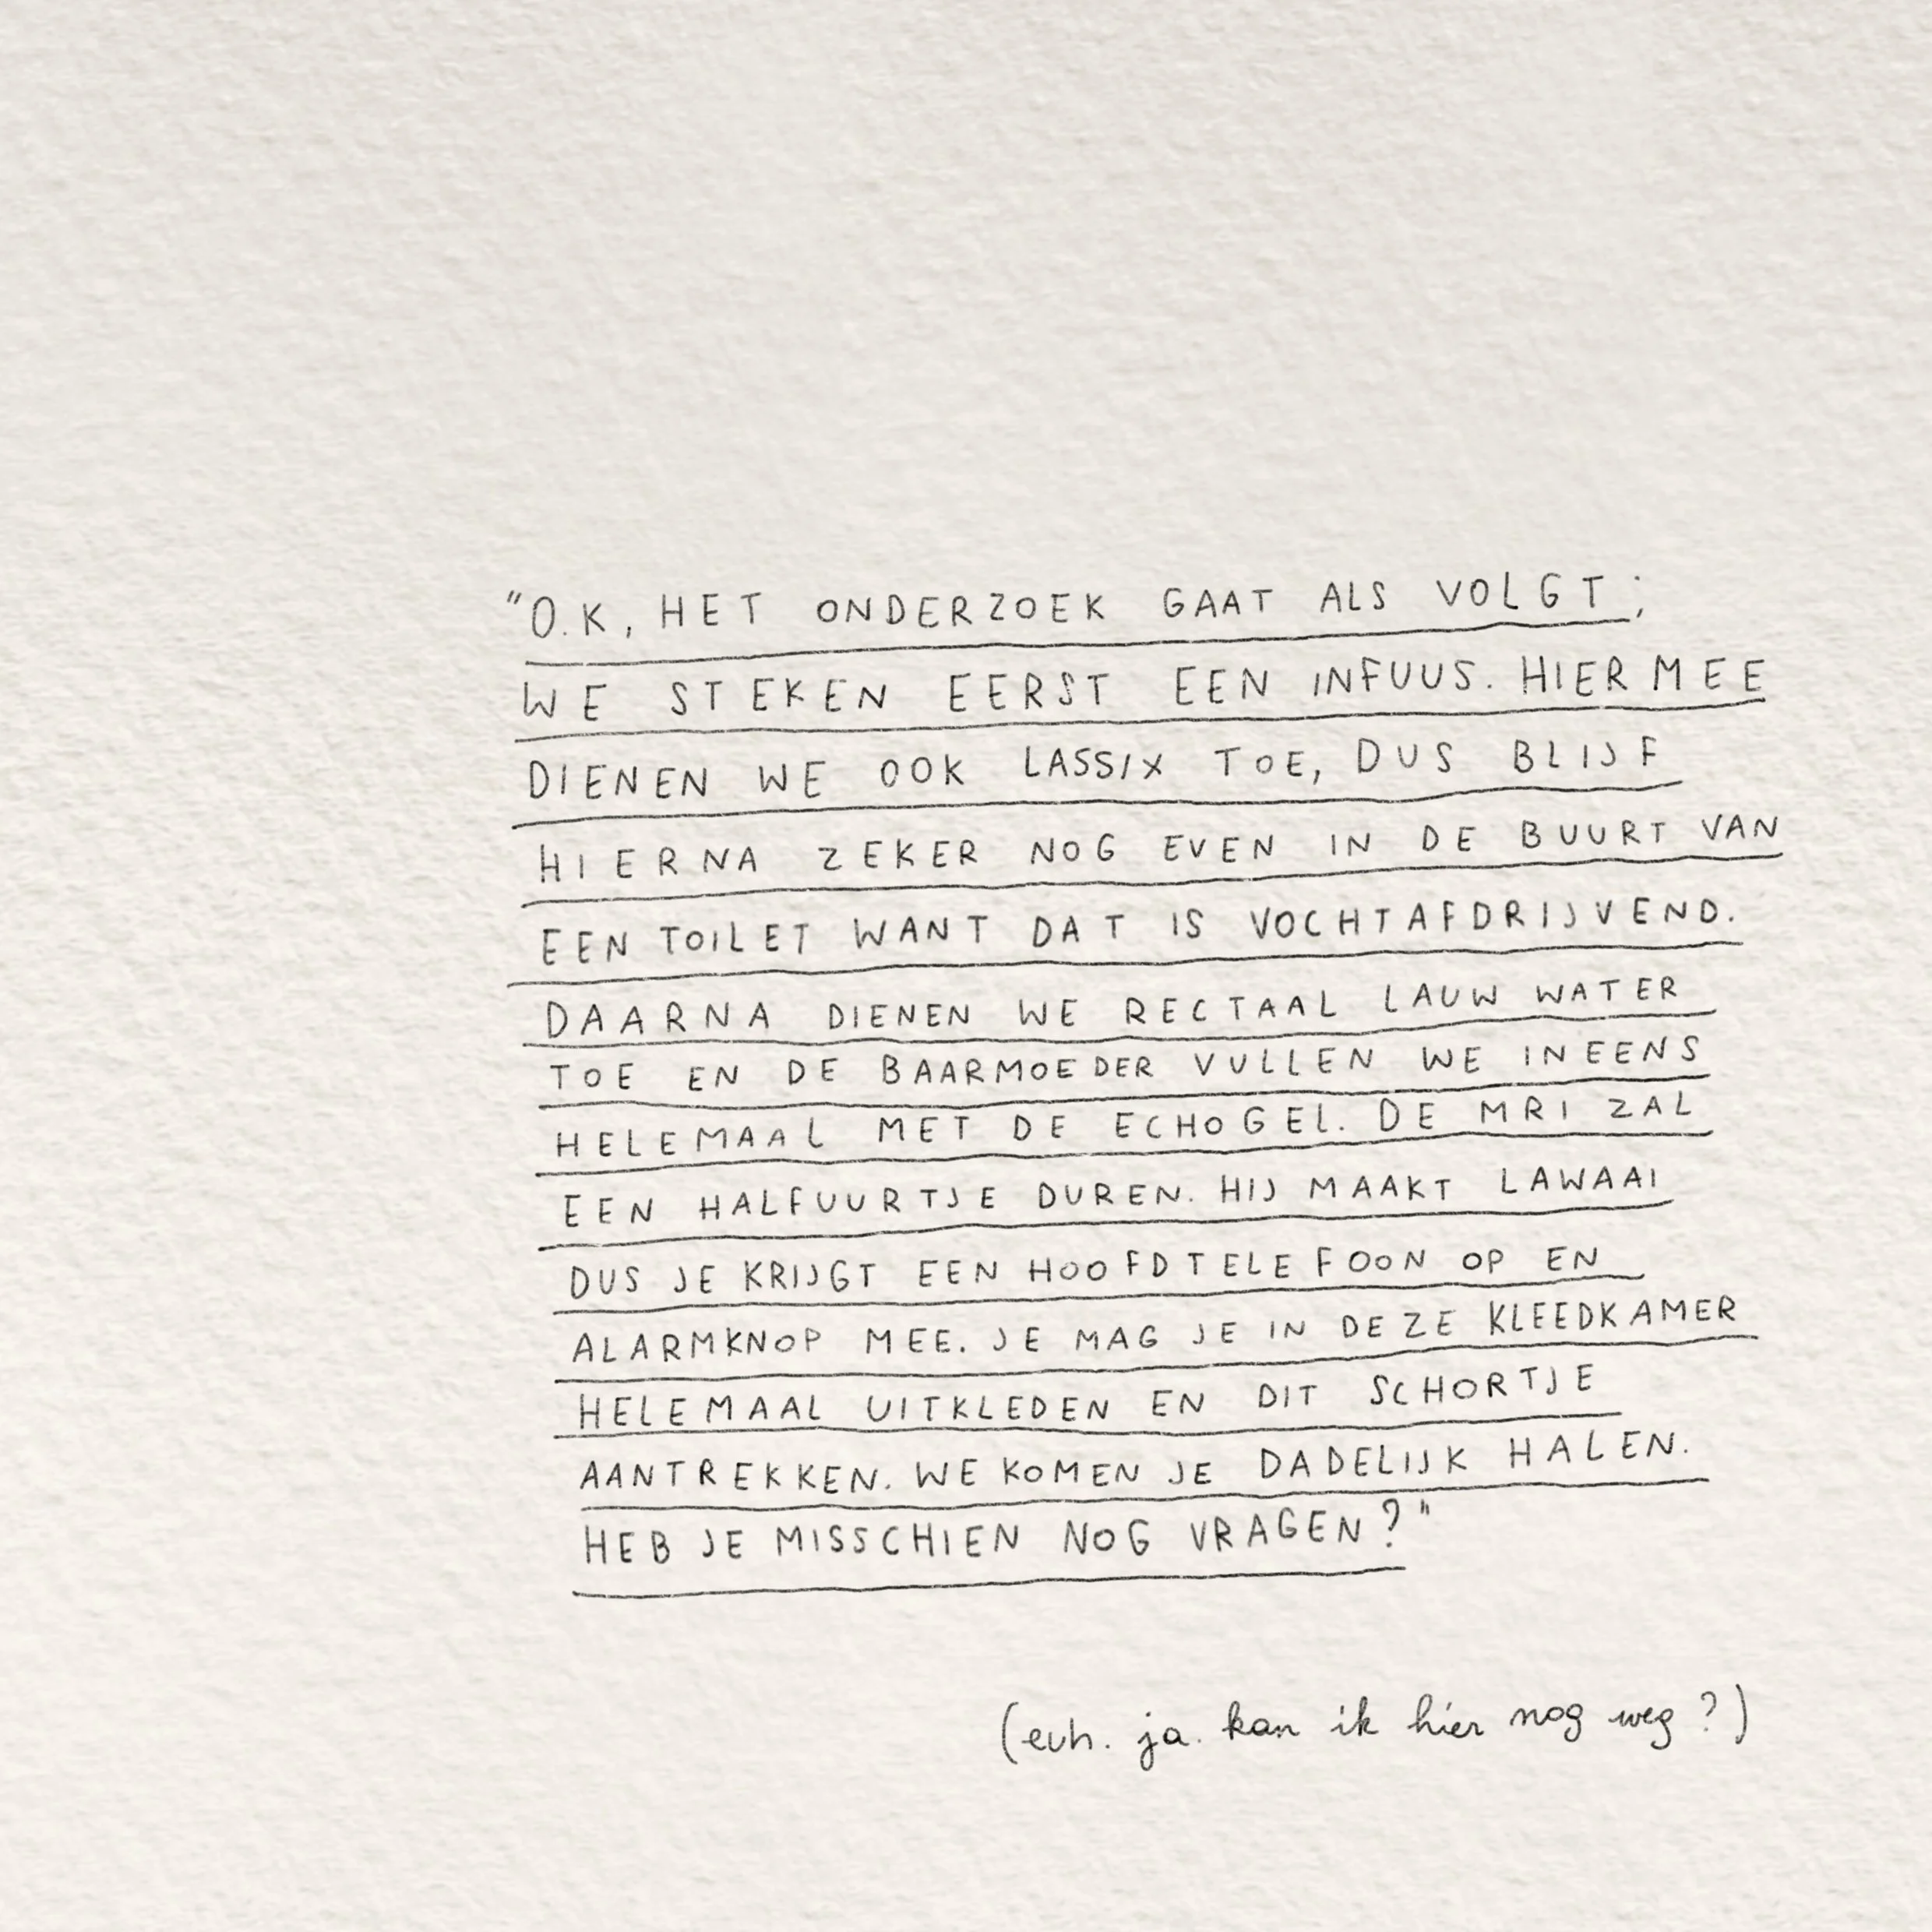 "O.K, HET ONDERZOEK GAAT ALS VOLGT;
WE STEKEN EERST EEN INFUUS. HIERMEE
DIENEN WE OOK LASSIX TOE, DUS BLIJF
HIERNA ZEKER NOG EVEN IN DE BUURT VAN
EEN TOILET WANT DAT IS VOCHTAFDRIJVEND.
DAARNA DIENEN WE RECTAAL LAUW WATER
TOE EN DE BAARMOEDER VULLEN WE INEENS
HELEMAAL MET DE ECHOGEL. DE MRI ZAL
EEN HALFUURTJE DUREN. HIJ MAAKT LAWAAI
DUS JE KRIJGT EEN HOOFDTELEFOON OP EN
ALARMKNOP MEE. JE MAG JE IN DEZE KLEEDKAMER
HELEMAAL UITKLEDEN EN DIT SCHORTJE
AANTREKKEN. WE KOMEN JE DADELIJK HALEN.
HEB JE MISSCHIEN NOG VRAGEN?"
(euh. ja. kan ik hier nog weg?)